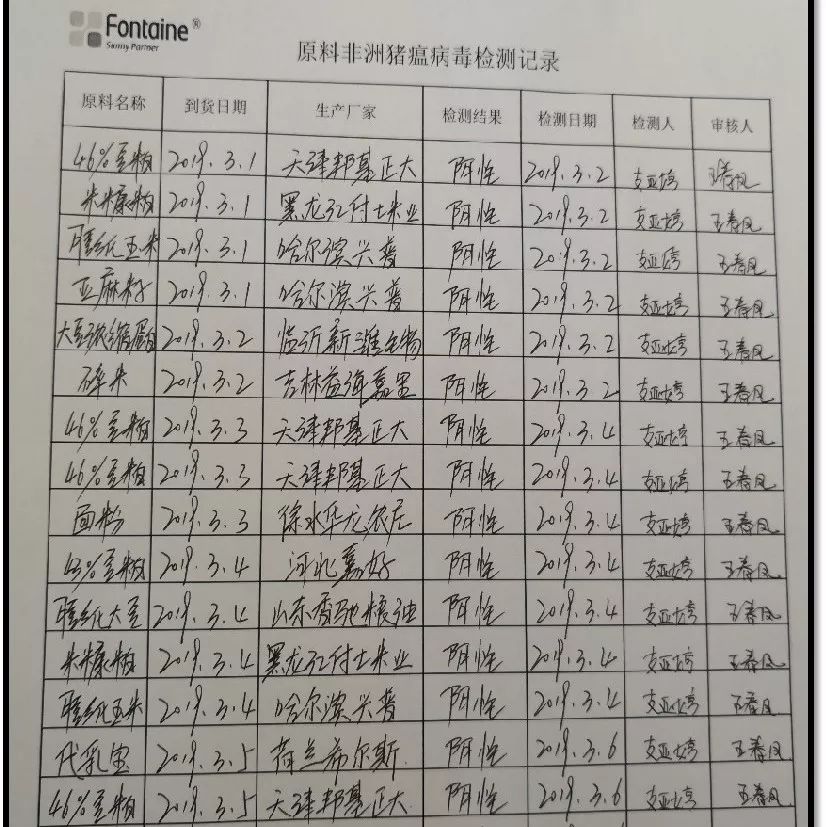 Fontaine®
Sunny Partner
原料非洲猪瘟病毒检测记录
原料名称 到货日期 生产厂家 检测结果 检测日期 检测人 审核人
46%豆粕 2019.3.1 天津邦基正大 阴性 2019.3.2 支亚婷 王春凤
米糠粕 2019.3.1 黑龙江付士米业 阴性 2019.3.2 支亚婷 王春凤
膨化玉米 2019.3.1 哈尔滨兴普 阴性 2019.3.2 支亚婷 王春凤
亚麻籽 2019.3.1 哈尔滨兴普 阴性 2019.3.2 支亚婷 王春凤
大豆浓缩蛋白 2019.3.2 临沂新潍生物 阴性 2019.3.2 支亚婷 王春凤
碎米 2019.3.2 吉林益海嘉里 阴性 2019.3.2 支亚婷 王春凤
46%豆粕 2019.3.3 天津邦基正大 阴性 2019.3.4 支亚婷 王春凤
46%豆粕 2019.3.3 天津邦基正大 阴性 2019.3.4 支亚婷 王春凤
面粉 2019.3.3 徐水华龙 阴性 2019.3.4 支亚婷 王春凤
43%豆粕 2019.3.4 河北嘉好 阴性 2019.3.4 支亚婷 王春凤
膨化大豆 2019.3.4 山东香驰粮油 阴性 2019.3.4 支亚婷 王春凤
米糠粕 2019.3.4 黑龙江付士米业 阴性 2019.3.4 支亚婷 王春凤
膨化玉米 2019.3.4 哈尔滨兴普 阴性 2019.3.4 支亚婷 王春凤
代乳宝 2019.3.5 荷兰希尔斯 阴性 2019.3.6 支亚婷 王春凤
46%豆粕 2019.3.5 天津邦基正大 阴性 2019.3.6 支亚婷 王春凤